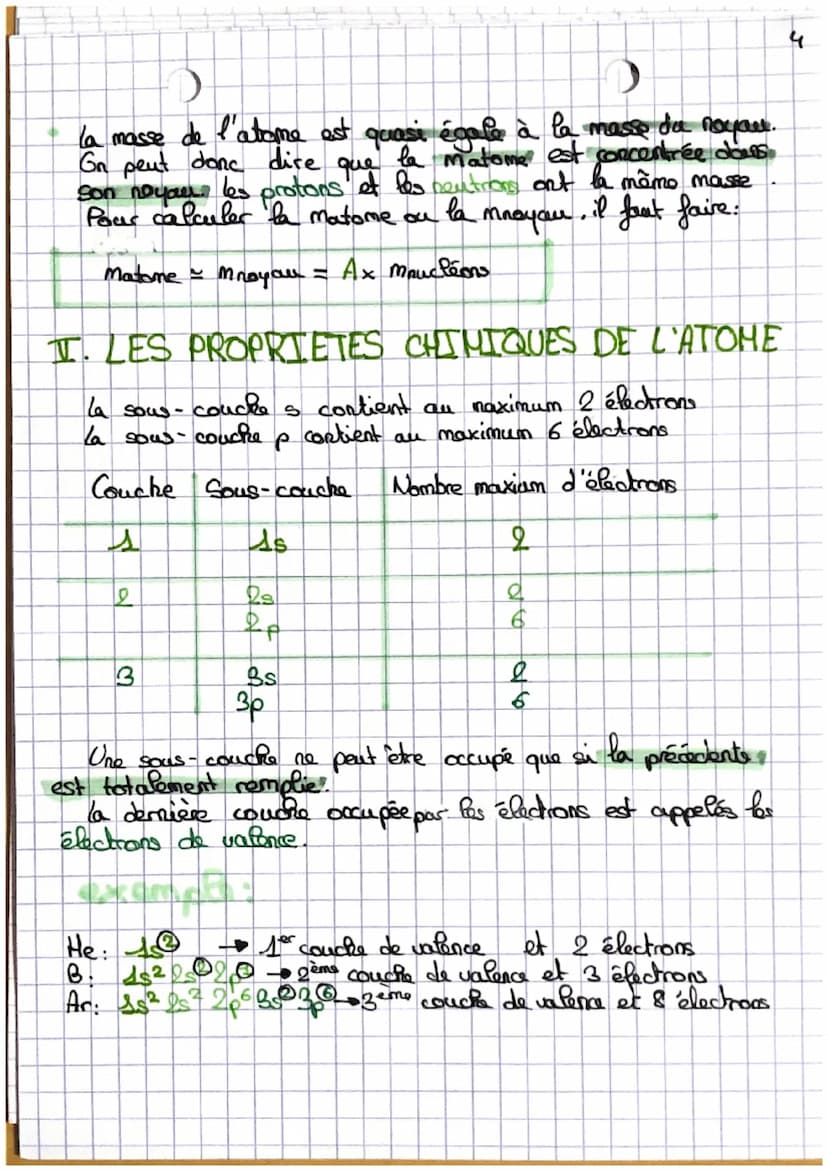 4
La masse de l'atome est quasi égale à la masse du noyau.
On peut donc dire que la matome est concentrée dans
son noyau, les protons et les neutrons ont la même masse.
Pour calculer la matome ou la mnoyau, il faut faire:
Matome ≃ Mnoyau = A x Mnucléons
V. LES PROPRIETES CHIMIQUES DE L'ATOME
La sous-couche s contient au maximum 2 électrons
La sous-couche p contient au maximum 6 électrons
Couche Sous-couche Nombre maxium d'électrons
1 1s 2
2 2s 2
2p 6
3 3s 2
3p 6
Une sous-couche ne peut être occupé que si la précédente
est totalement remplie.
La dernière couche occupée par les électrons est appelés les
électrons de valence.
exemple:
He: 1s² → 1er couche de valence et 2 électrons
B: 1s² 2s² 2p¹ → 2ème couche de valence et 3 électrons
Ar: 1s² 2s² 2p⁶ 3s² 3p⁶ → 3ème couche de valence et 8 électrons